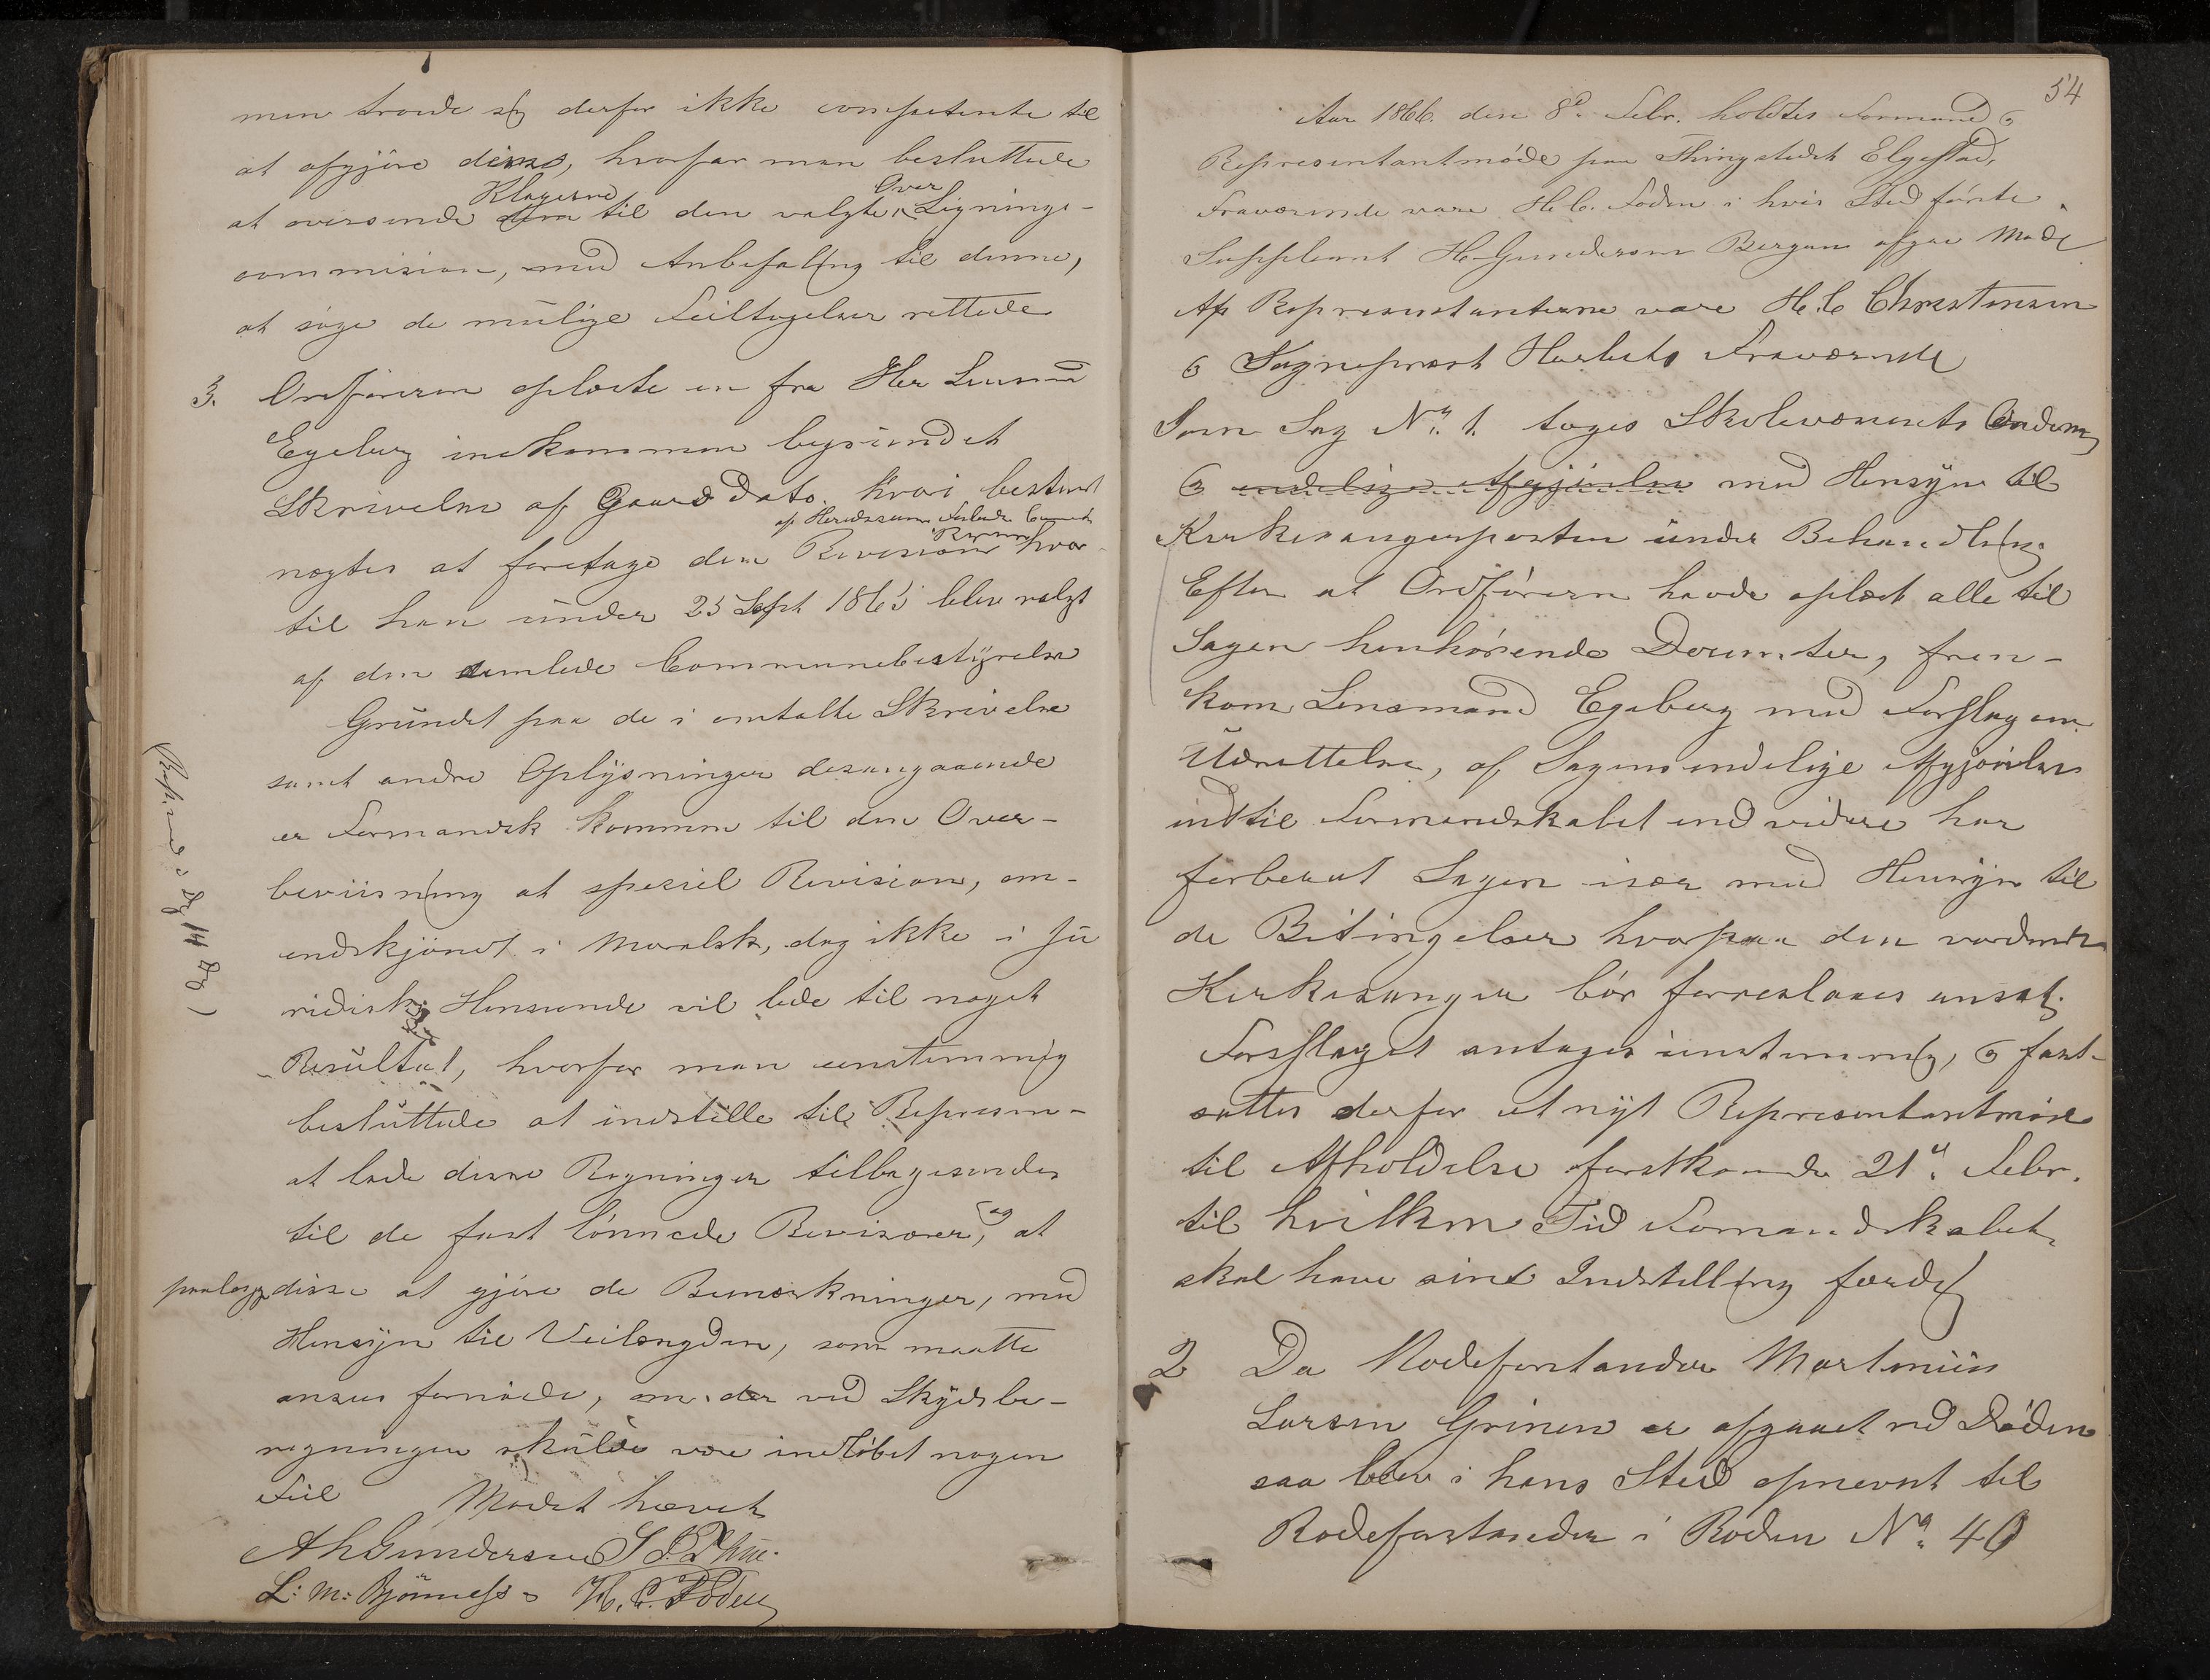 men troede sig derfor ikke competente til
at afgjöre denne, hvorfor man besluttede
at oversende Klagerne til den valgte Over Lignings-
commision, med Anbefaling til denne,
at söge de mulige Feiltagelser rettede
3. Ordföreren oplæste en fra Her Lensmd
Egeberg indkommen begrundet
Skrivelse af Gaards Dato. hvori bestemt
nægtes at foretage den Revision hvor-
til han under 25 Sept 1865 blev valgt
af den samlede Communebestyrelse
Grundet paa de i omtalte Skrivelse
samt andre Oplysninger desangaaende
er Formandsk kommen til den Over-
beviisning at speciel Revision, om-
endskjöndt i Moralsk, dog ikke i ju
ridisk Henseende vil lede til noget
Resultat, hvorfor man eenstemmig
besluttede at indstille til Represen-
at lade disse Regninger tilbagesendes
til de fast lönnede Revisorer, og at
paalægge disse at gjöre de Bemærkninger, med
Hensyn til Veilængden, som maatte
ansees fornöden, om der ved Skydsbe-
regningen skulde være indlöbet nogen
Feil Mödet hævet
A h Gundersen
L: M: Bjönness H. C. Foden
54
Aar 1866. den 8d. Febr. holdtes Formand &
Representantmöde paa Thingstedet Elgestad,
Fraværende vare H. C. Foden i hvis Sted förste
Suppleant H Gundersen Bergan afgav Möde
Af Representanterne vare H. C Christensen
& Sogneprest Fraværende
Som Sag No. 1. toges Skolevæsenets Ordning
& endelige Afgjörelse med Hensyn til
Kirkesangerposten under Behandling
Efter at Ordföreren havde oplæst alle til
Sagen henhörende Documter, frem-
kom Lensmand Egeberg med Forslag om
Udsættelse, af Sagens endelige Afgjörelse
indtil Formandskabet end videre har
forberedt Sagen især med Hensyn til
de Betingelser hvorpaa den vordende
Kirkesanger bör forreslaaes ansat.
Forslaget antages eenstemmig, & fast-
sattes derfor et nyt Representantmöde
til Afholdelse förstkomde 21d. Febr.
til hvilken Tid Formandskabet
skal have sine Indstilling færdig
2 Da Rodeforstander Martinius
Larsen Grinen er afgaaet ved Döden
saa blev i hans Sted opnevnt til
Rodeforstander i Roden No. 40